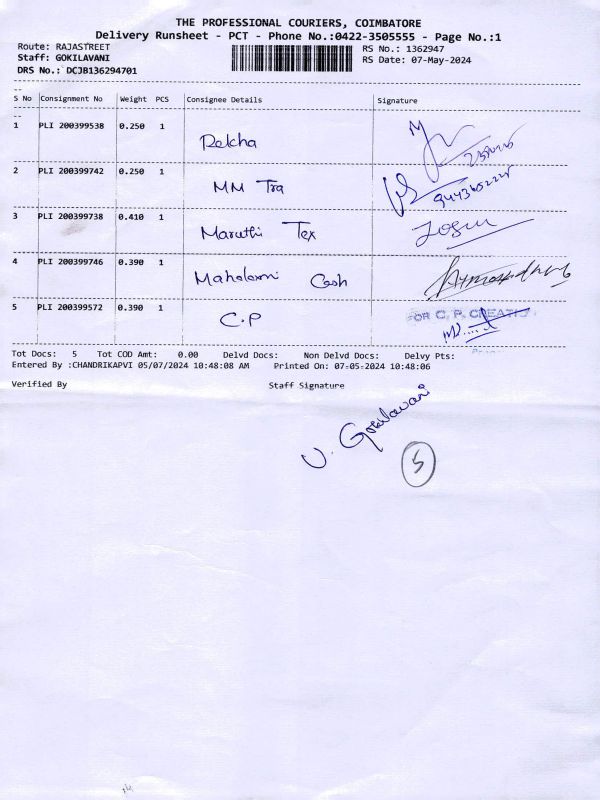 THE PROFESSIONAL COURIERS, COIMBATORE
Delivery Runsheet - PCT - Phone No.:0422-3505555 - Page No.:1
Route: RAJASTREET RS No.: 1362947
Staff: GOKILAVANI RS Date: 07-May-2024
DRS No.: DCJB136294701
S No Consignment No Weight PCS Consignee Details Signature
1 PLI 200399538 0.250 1 Rekha
2 PLI 200399742 0.250 1 MM Tra
3 PLI 200399738 0.410 1 Maruthi Tex
4 PLI 200399746 0.390 1 Mahalaxmi Cash
5 PLI 200399572 0.390 1 C.P FOR C. P. CREATI
Tot Docs: 5 Tot COD Amt: 0.00 Delvd Docs: Non Delvd Docs: Delvy Pts:
Entered By :CHANDRIKAPVI 05/07/2024 10:48:08 AM Printed On: 07-05-2024 10:48:06
Verified By Staff Signature
V. Gokilavani
5